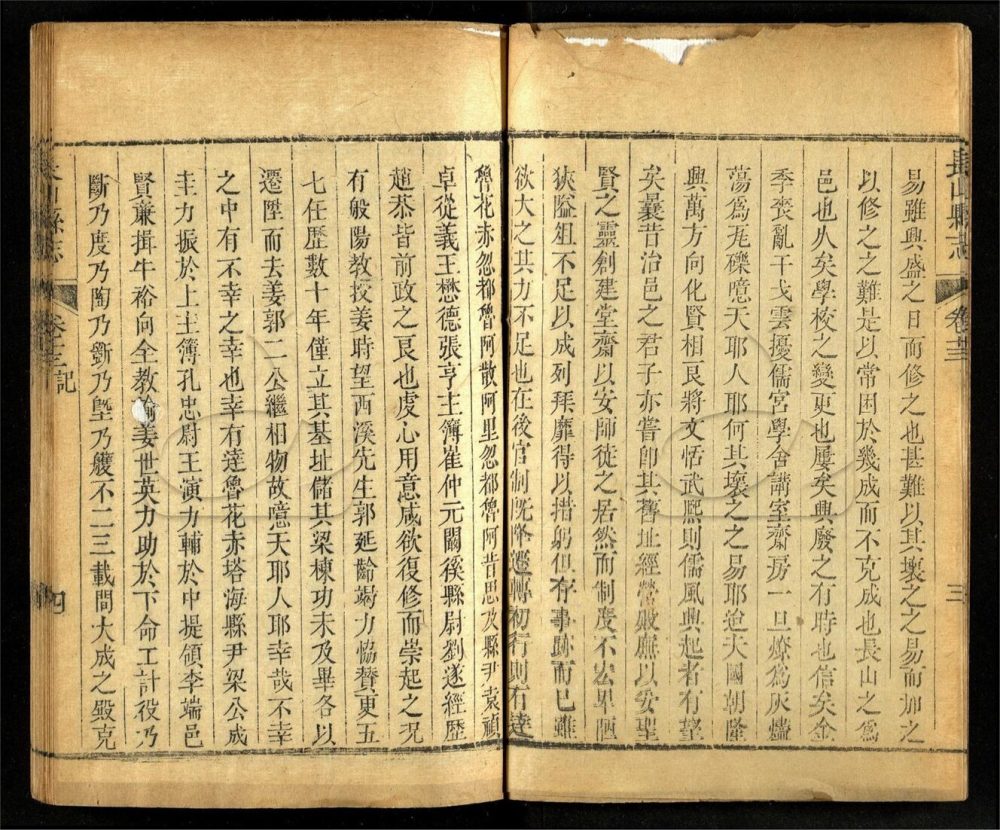 長山縣志
卷十三
三
易雖興盛之日而修之也甚難以其壞之之易而加之
以修之之難是以常困於幾成而不克成也長山之為
邑也久矣學校之變更也屢矣興廢之有時也信矣金
季喪亂干戈雲擾儒宮學舍講室齋房一旦燎為灰燼
蕩為瓦礫噫天耶人耶何其壞之之易耶迨夫國朝隆
興萬方向化賢相良將文恬武熙則儒風興起者有望
矣曩昔治邑之君子亦嘗即其舊址經營殿廡以妥聖
賢之靈創建堂齋以安師徒之居然而制度不宏卑陋
狹隘俎不足以成列拜靡得以措躬但存事跡而已雖
欲大之其力不足也在後官制旣降遷轉初行則有達
魯花赤忽都魯阿散阿里忽都魯阿昔思及縣尹袁禎
卓從義王懋德張亨主簿崔仲元闞徯縣尉劉遂經歷
趙恭皆前政之良也虔心用意咸欲復修而崇起之况
有般陽教授姜時望西溪先生郭延齡竭力恊贊更五
七任歷數十年僅立其基址儲其梁棟功未及畢各以
遷陞而去姜郭二公繼相物故噫天耶人耶幸哉不幸
之中有不幸之幸也幸有達魯花赤塔海縣尹梁公成
圭力振於上主簿孔忠尉王演力輔於中提領李端邑
賢蒹揖牛裕向全教諭姜世英力助於下命工計役乃
斷乃度乃陶乃斵乃墍乃雘不二三載間大成之殿克
長山縣志
卷十三 記
四